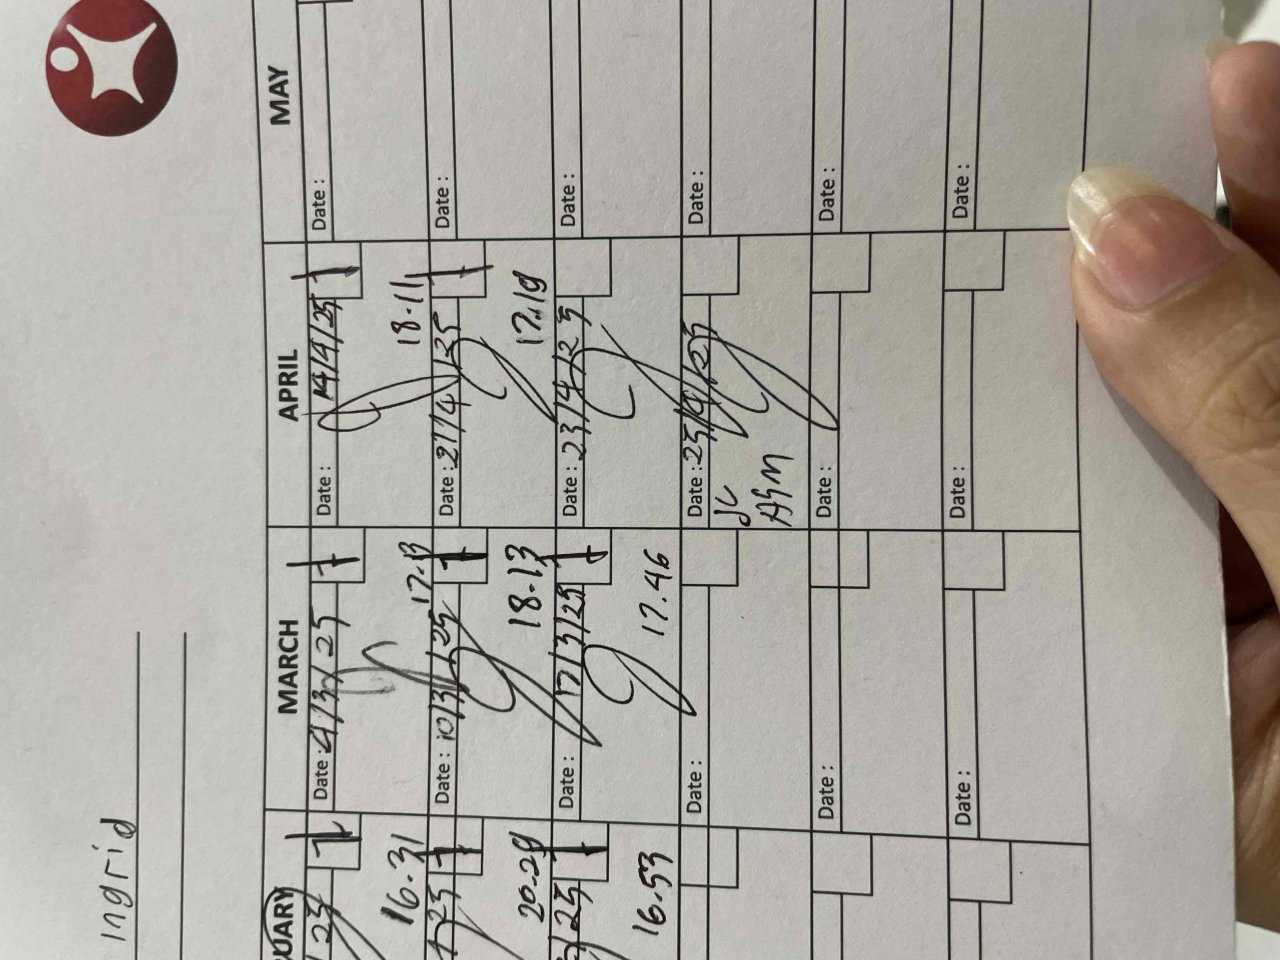 Ingrid
UARY
MARCH
APRIL
MAY
25
Date : 4/3/25
Date : 14/4/25
Date :
16.31
17.13
18.11
25
Date : 10/3/25
Date : 21/4/25
Date :
20.29
18.13
17.19
25
Date : 17/3/25
Date : 23/4/25
Date :
16.53
17.46
Date :
Date : 25/4/25
Date :
Date :
Date :
Date :
Date :
Date :
Date :